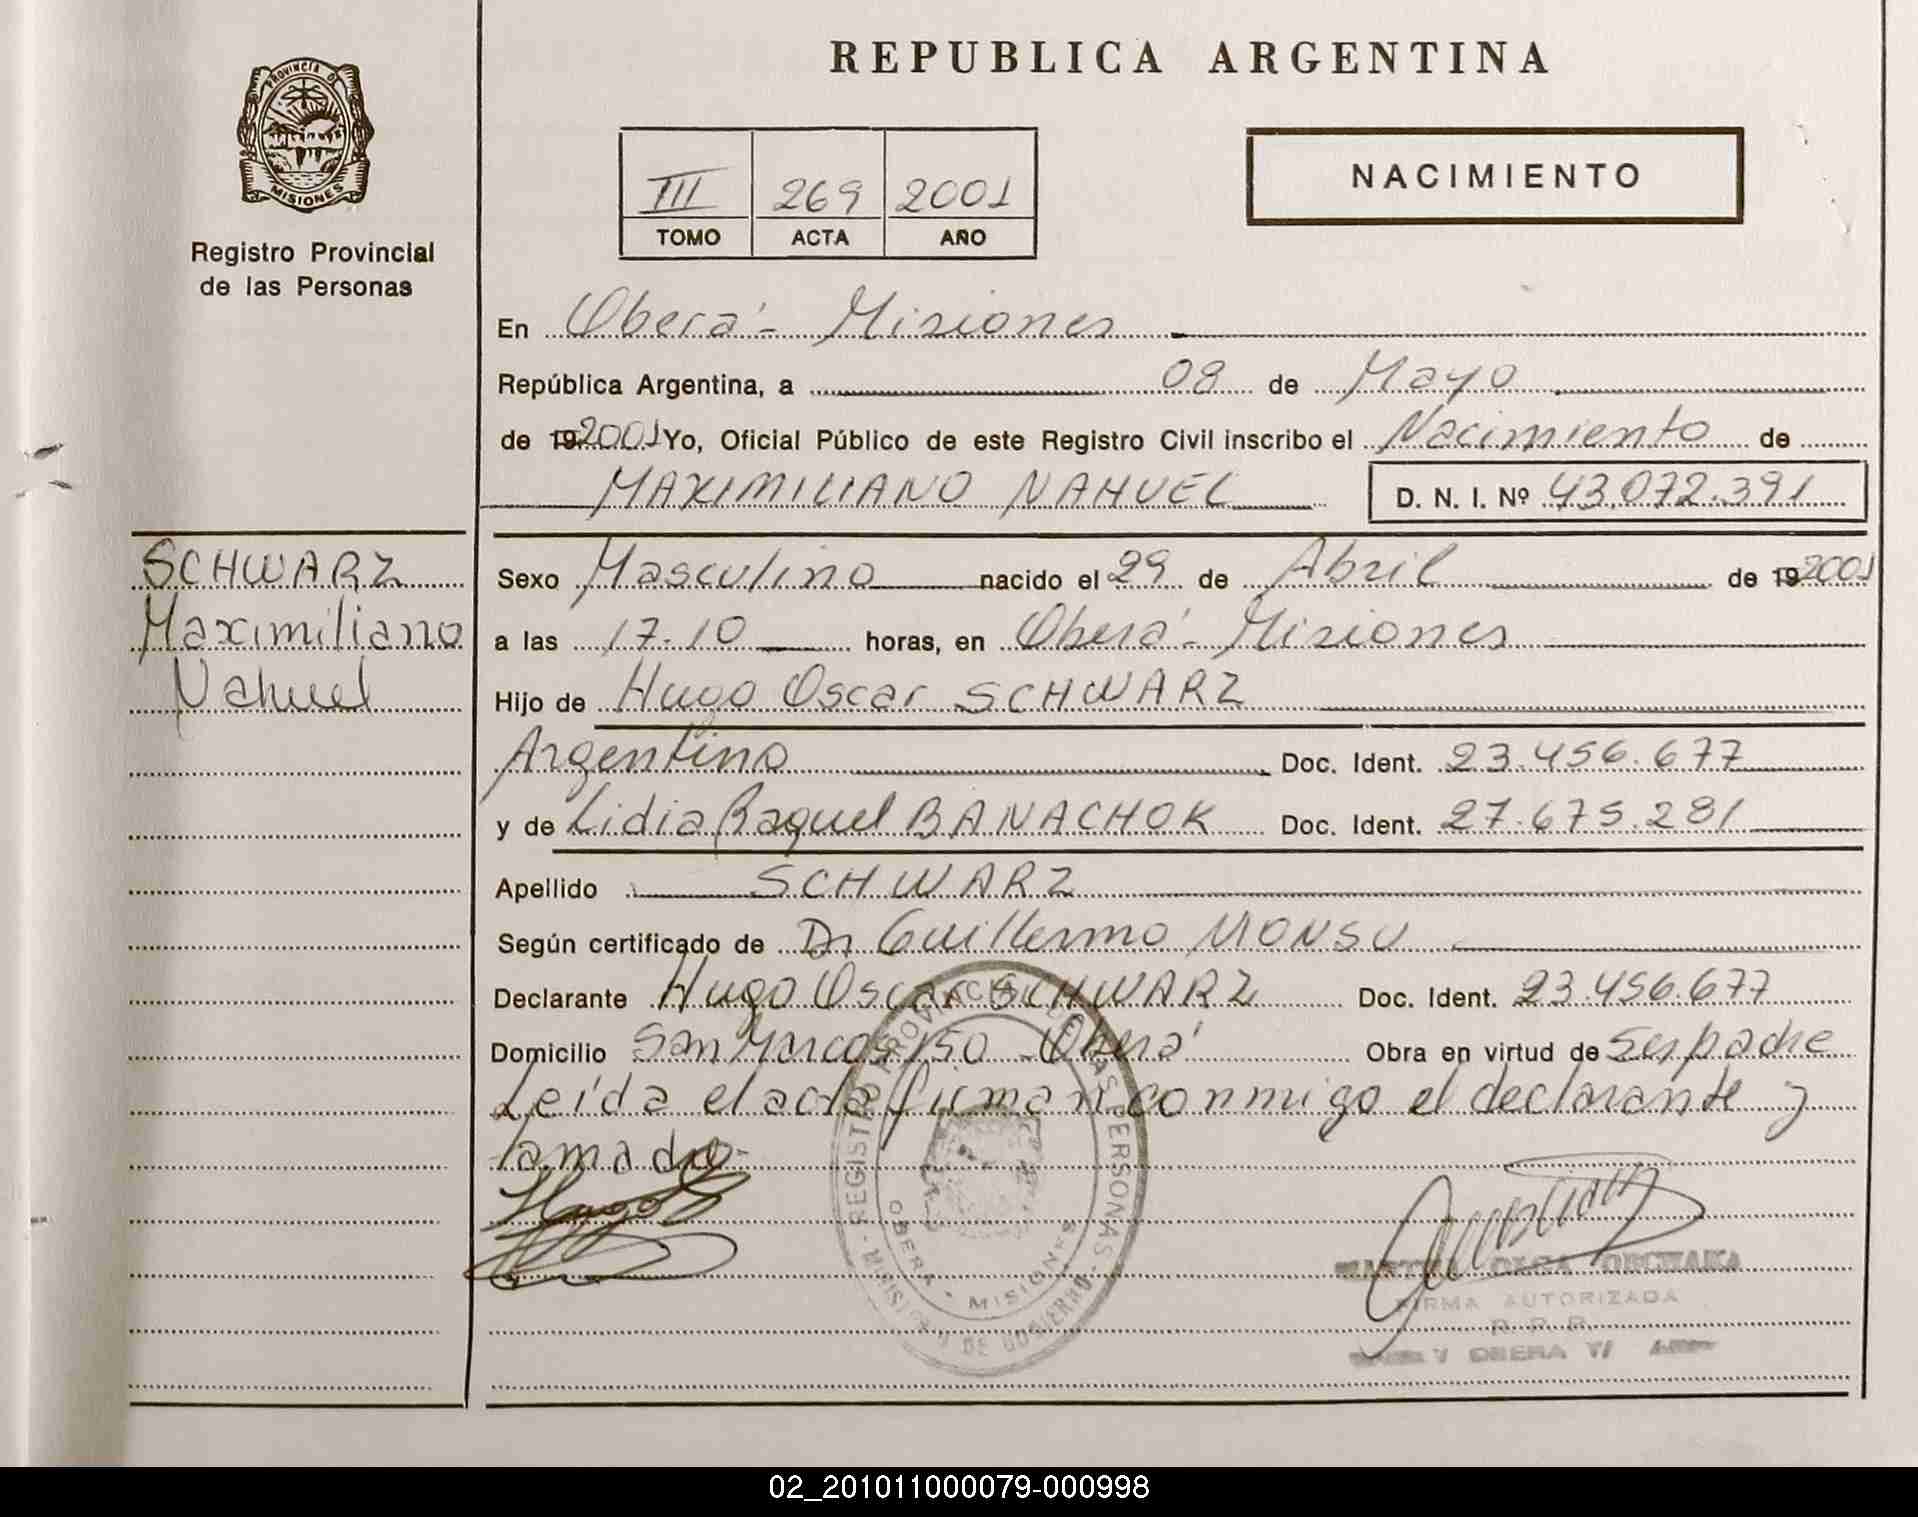 REPUBLICA ARGENTINA
PROVINCIA D
MISIONES
Registro Provincial
de las Personas
III 269 2001
TOMO ACTA AÑO
NACIMIENTO
En Oberá - Misiones
República Argentina, a 08 de Mayo
de 192001 Yo, Oficial Público de este Registro Civil inscribo el Nacimiento de
MAXIMILIANO NAHUEL D. N. I. Nº 43.072.391
SCHWARZ
Maximiliano
Nahuel
Sexo Masculino nacido el 29 de Abril de 192001
a las 17.10 horas, en Oberá - Misiones
Hijo de Hugo Oscar SCHWARZ
Argentino Doc. Ident. 23.456.677
y de Lidia Raquel BANACHOK Doc. Ident. 27.675.281
Apellido SCHWARZ
Según certificado de Dr Guillermo MONSU
Declarante Hugo Oscar SCHWARZ Doc. Ident. 23.456.677
Domicilio San Marcos 150 - Oberá Obra en virtud de ser padre
Leída el acta firman conmigo el declarante y
la madre.
REGISTRO PROVINCIAL DE LAS PERSONAS
OBERA - MISIONES
DE GOBIERNO
OLGA
FIRMA AUTORIZADA
R. P. P.
OBERA
02_201011000079-000998